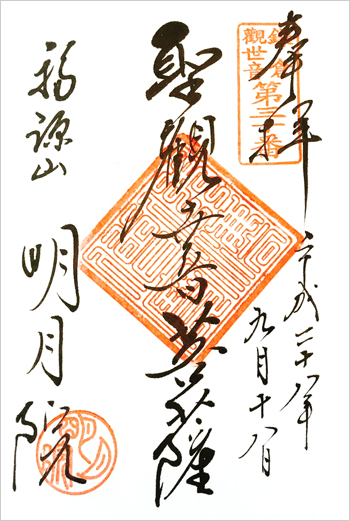 奉拝
鎌倉
観世音
第三十番
平成二十八年
九月十八日
聖観世音菩薩
福源山
明月院